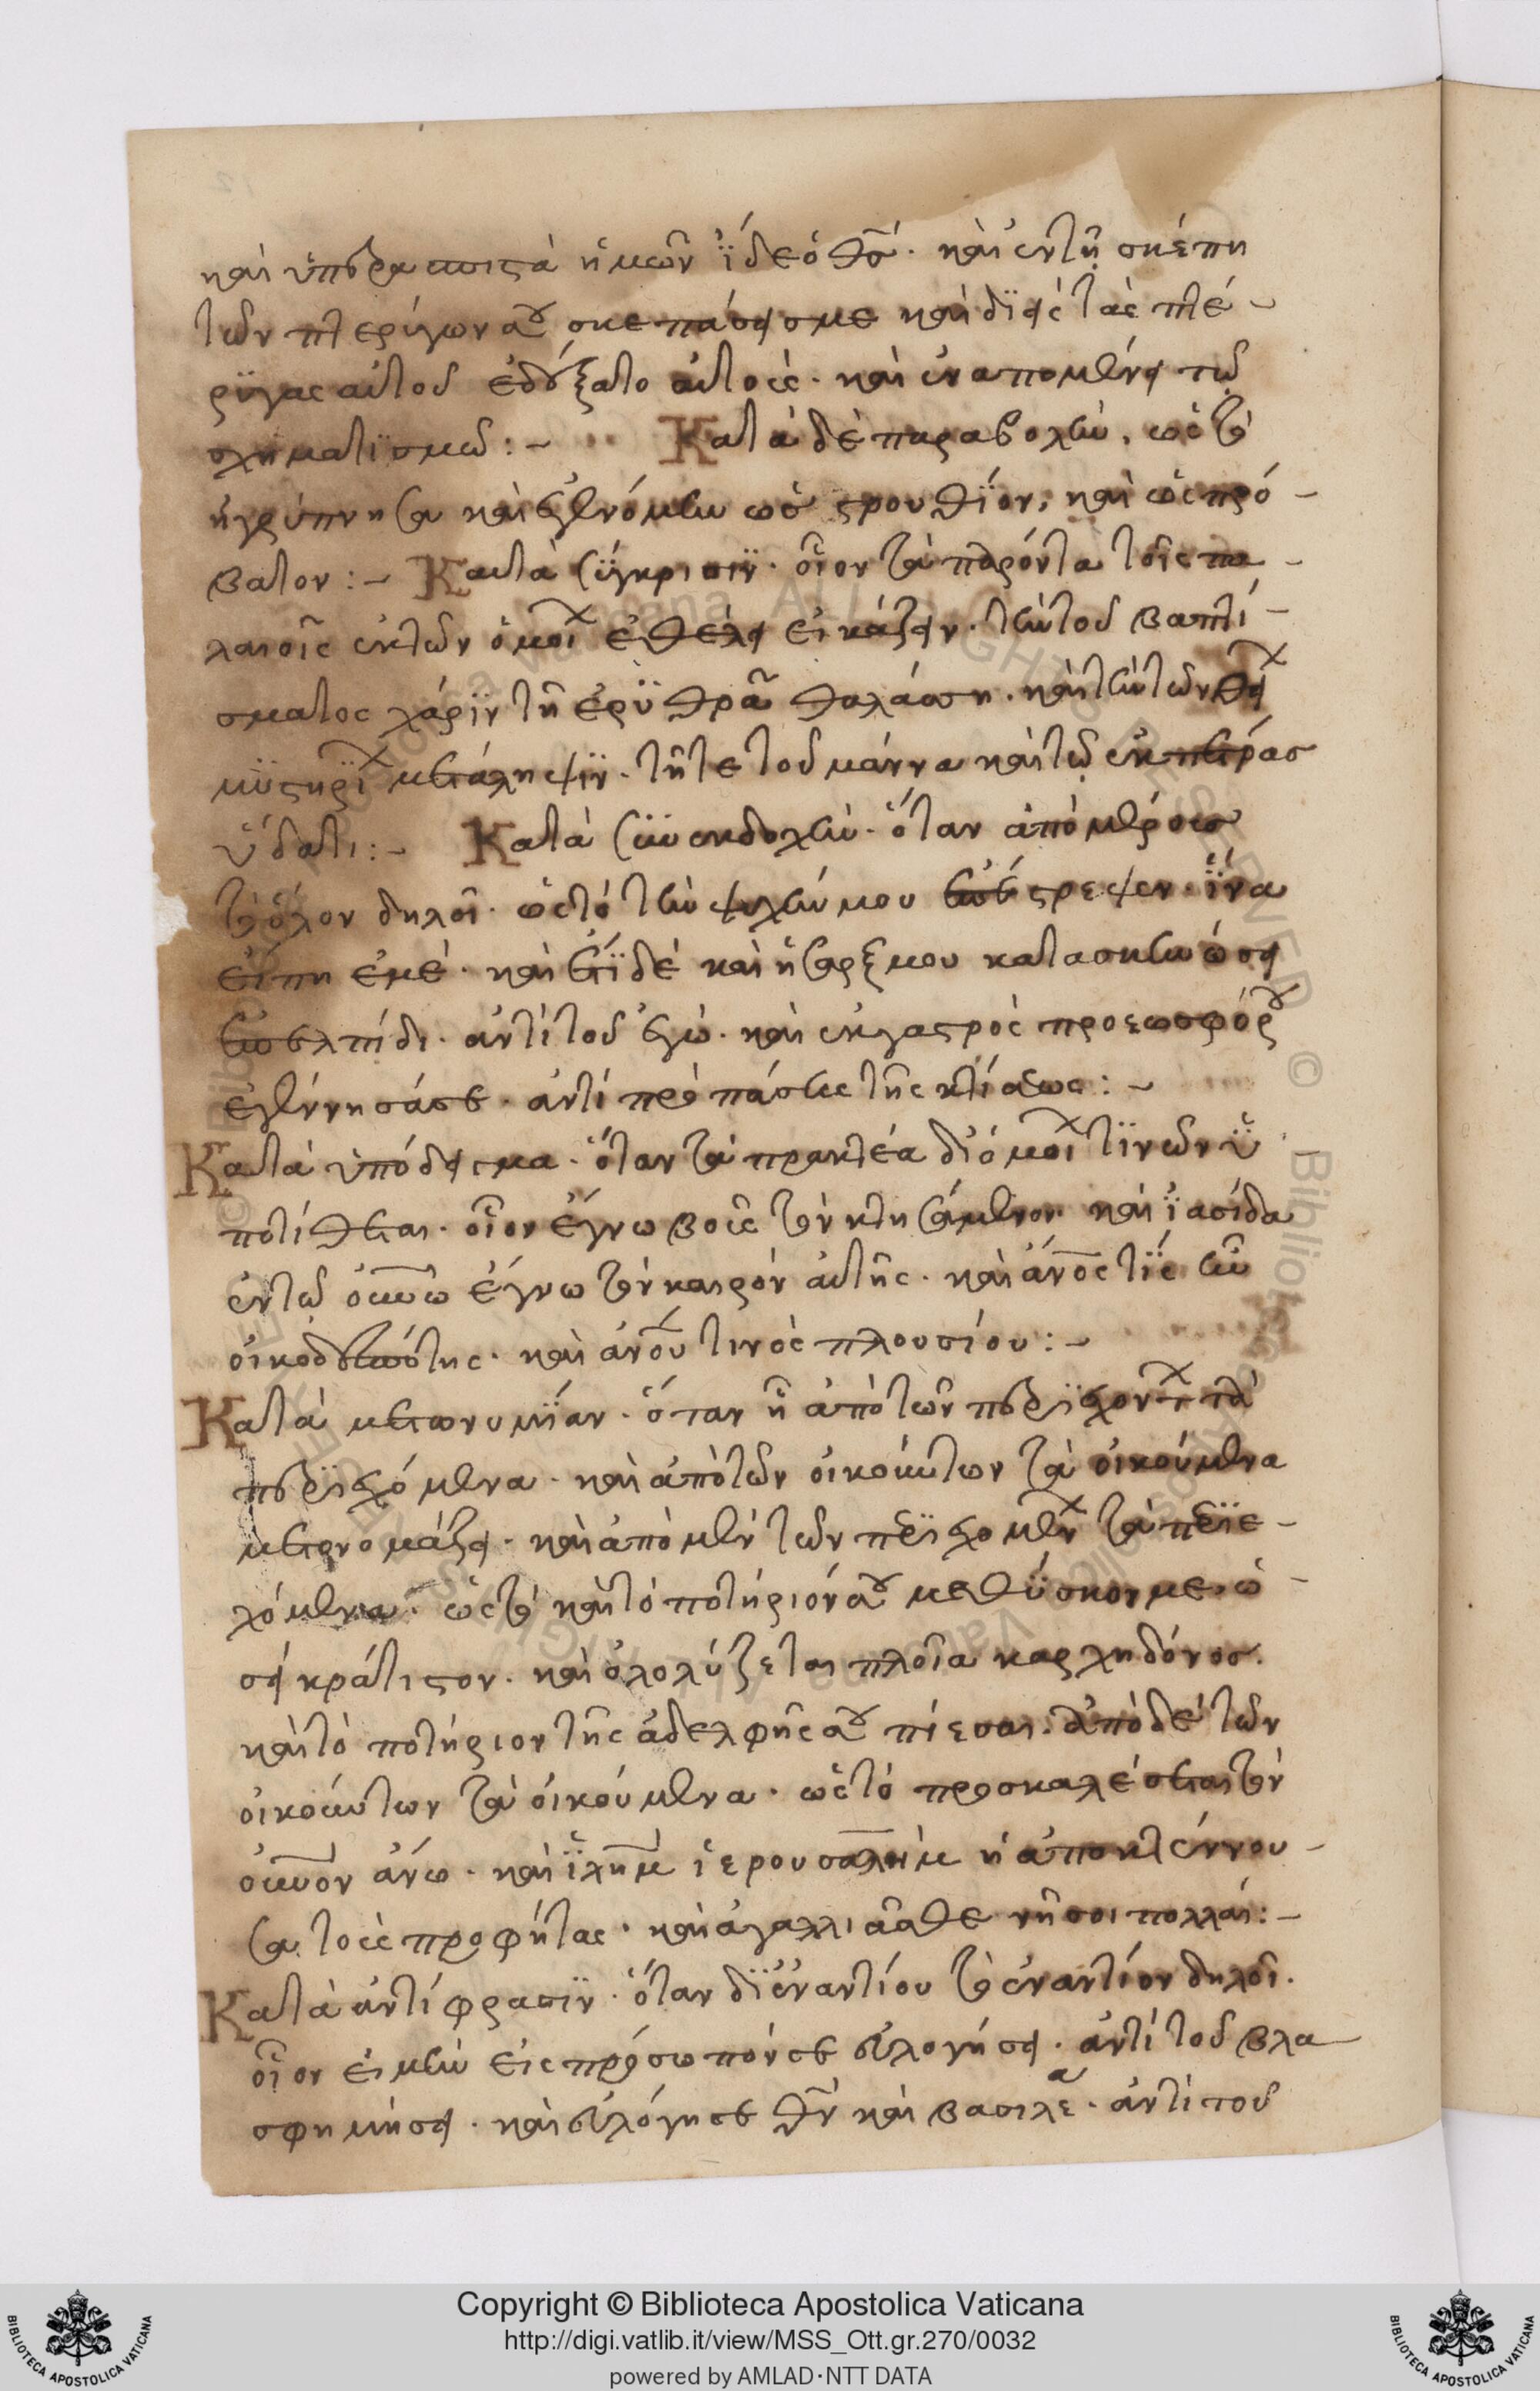 καὶ ὑπερασπιστὰ ἡμῶν ἴδε ὁ θς. καὶ ἐν τῆ σκέπη
τῶν πτερύγων αυ σκεπάσεις με καὶ διεὶς τὰς πτέ-
ρυγας αὐτοῦ ἐδέξατο αὐτούς. καὶ ἐναπομένει τῶ
σχηματισμῶ:- Κατὰ δὲ παραβολὴν. ὡς τὸ
ἠγρύπνησα καὶ ἐγενόμην ὡς στρουθίον, καὶ ὡς πρό-
βατον:- Κατὰ σύγκρισιν. οἷον τὰ παρόντα τοῖς πα-
λαιοῖς ἐκ τῶν ὁμοί ἐθέλει εἰκάζειν. τὴν τοῦ βαπτί-
σματος χάριν τῆ ἐρυθρᾶ θαλάσση. καὶ τὴν τῶν θεί
μυστηρί μετάληψιν. τῆ τε τοῦ μάννα καὶ τῶ ἐκ πέτρας
ὕδατι:- Κατὰ συνεκδοχὴν. ὅταν ἀπὸ μέρους
τὸ ὅλον δηλοῖ. ὡς τὸ τὴν ψυχήν μου ἐπέστρεψεν. ἵνα
εἴπη ἐμέ. καὶ ἔτι δὲ καὶ ἡ σαρξ μου κατασκηνώσει
ἐπ' ἐλπίδι. ἀντὶ τοῦ ἐγώ. καὶ ἐκ γαστρὸς προεωσφόρ
ἐγέννησά σε. ἀντὶ πρὸ πάσης τῆς κτίσεως:-
Κατὰ ὑπόδειγμα. ὅταν τὰ πρακτέα δι' ὁμοί τινῶν ὑ
ποτίθεται. οἷον ἔγνω βοῦς τὸν κτησάμενον. καὶ ἡ ασίδα
ἐν τῶ οὐνω ἔγνω τὸν καιρὸν αὐτῆς. καὶ ἄνος τίς ἦν
οἰκοδεσπότης. καὶ ἀνου τινὸς πλουσίου:-
Κατὰ μετωνυμίαν. ὅταν ἢ ἀπὸ τῶν περιεχόντ τὰ
περιεχόμενα. καὶ ἀπὸ τῶν οἰκούντων τὰ οἰκούμενα
μετονομάζει. καὶ ἀπὸ μὲν τῶν περιεχομέν τὰ περιε-
χόμενα. ὡς τὸ καὶ τὸ ποτήριόν αυ μεθύσκον με ὡ-
σεὶ κράτιστον. καὶ ὀλολύζεται πλοῖα καρχηδόνος.
καὶ τὸ ποτήριον τῆς ἀδελφῆς αυ πίεσαι. ἀπὸ δὲ τῶν
οἰκούντων τὰ οἰκούμενα. ὡς τὸ προσκαλέσεται τὸν
οὐνον ἄνω. καὶ ϊλημ ἱερουσαλὴμ ἡ ἀποκτέννου-
σα τοὺς προφήτας. καὶ ἀγαλλιᾶσθε νῆσοι πολλαί:-
Κατὰ ἀντίφρασιν. ὅταν δι' ἐναντίου τὸ ἐναντίον δηλοῖ.
οἷον εἰ μὴν εἰς πρόσωπόν σε εὐλογήσει. ἀντὶ τοῦ βλα
σφημήσει. καὶ εὐλόγησε θν καὶ βασιλέα. ἀντὶ τοῦ
Copyright © Biblioteca Apostolica Vaticana
http://digi.vatlib.it/view/MSS_Ott.gr.270/0032
powered by AMLAD·NTT DATA
BIBLIOTECA APOSTOLICA VATICANA
BIBLIOTECA APOSTOLICA VATICANA